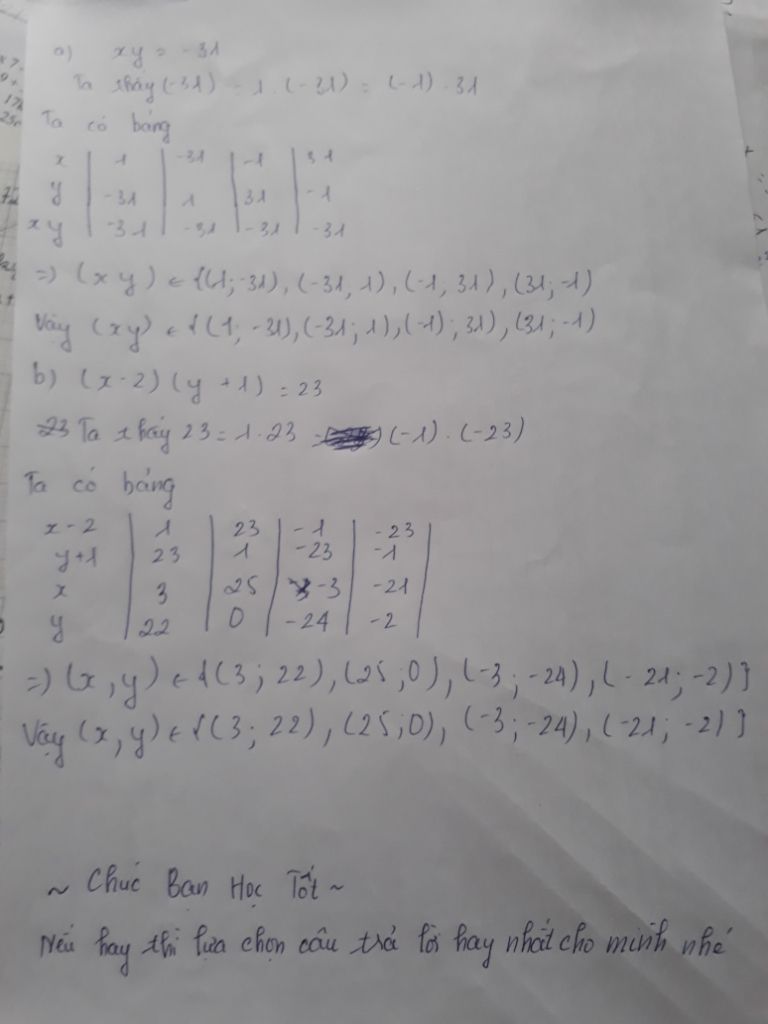 a) xy = -31
Ta thấy (-31) = 1. (-31) = (-1) . 31
Ta có bảng
x | 1 | -31 | -1 | 31
y | -31 | 1 | 31 | -1
xy | -31 | -31 | -31 | -31
=) (xy) ∈ {(1; -31), (-31, 1), (-1, 31), (31; -1)
Vậy (xy) ∈ {(1; -31), (-31; 1), (-1); 31), (31; -1)
b) (x-2) (y +1) = 23
Ta thấy 23 = 1.23 = (-1) . (-23)
Ta có bảng
x-2 | 1 | 23 | -1 | -23
y+1 | 23 | 1 | -23 | -1
x | 3 | 25 | -3 | -21
y | 22 | 0 | -24 | -2
=) (x,y) ∈ {(3; 22), (25;0), (-3; -24), (-21; -2)}
Vậy (x,y) ∈ {(3; 22), (25;0), (-3; -24), (-21; -2)}
~ Chúc Bạn Học Tốt ~
Nếu hay thì lựa chọn câu trả lời hay nhất cho mình nhé